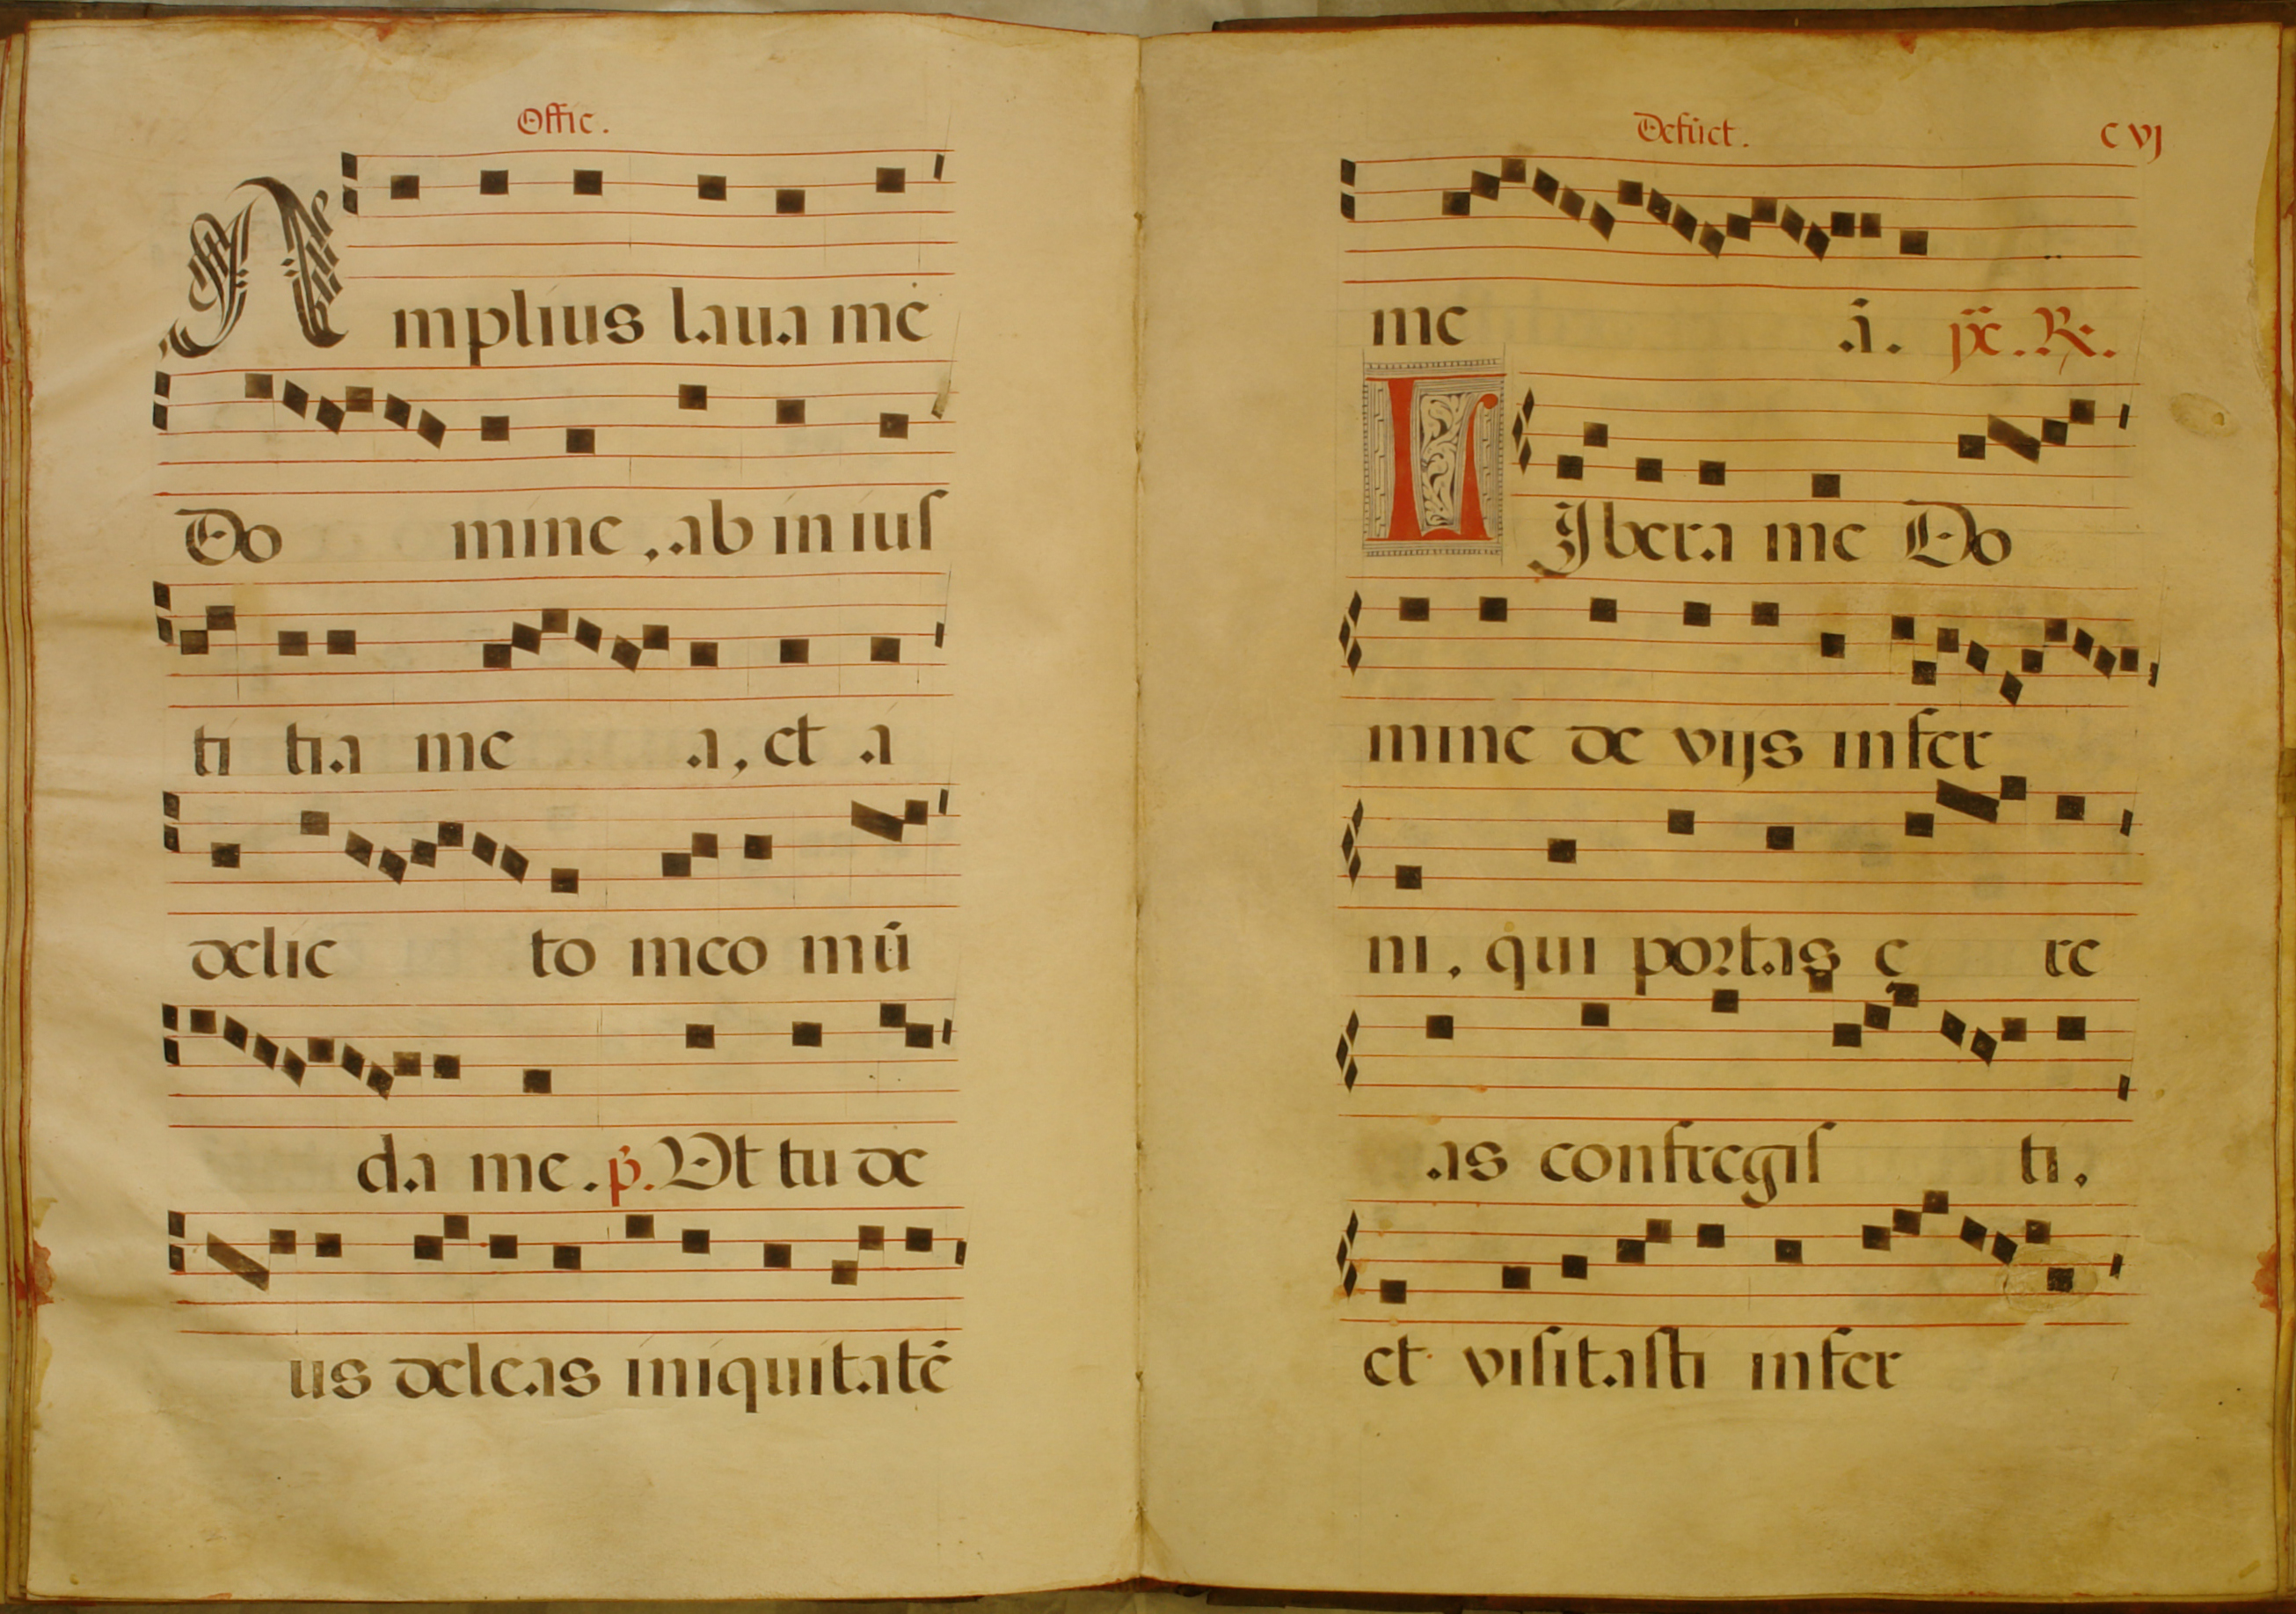 Offic.
Amplius laua mē
Do mine, ab in iuſ
ti tia me a, et a
delic to meo mū
da me. p̄. Vt tu de
us deleas iniquitatē
Defūct. cvj
me a. p̄c. R.
LIbera me Do
mine de vijs infer
ni, qui portas ę re
as confregiſ ti,
et viſitaſti infer